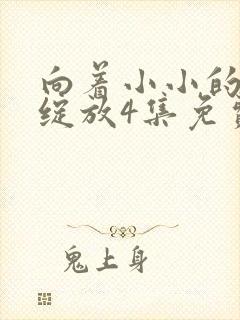 向着小小的
绽放4集免
鬼上身